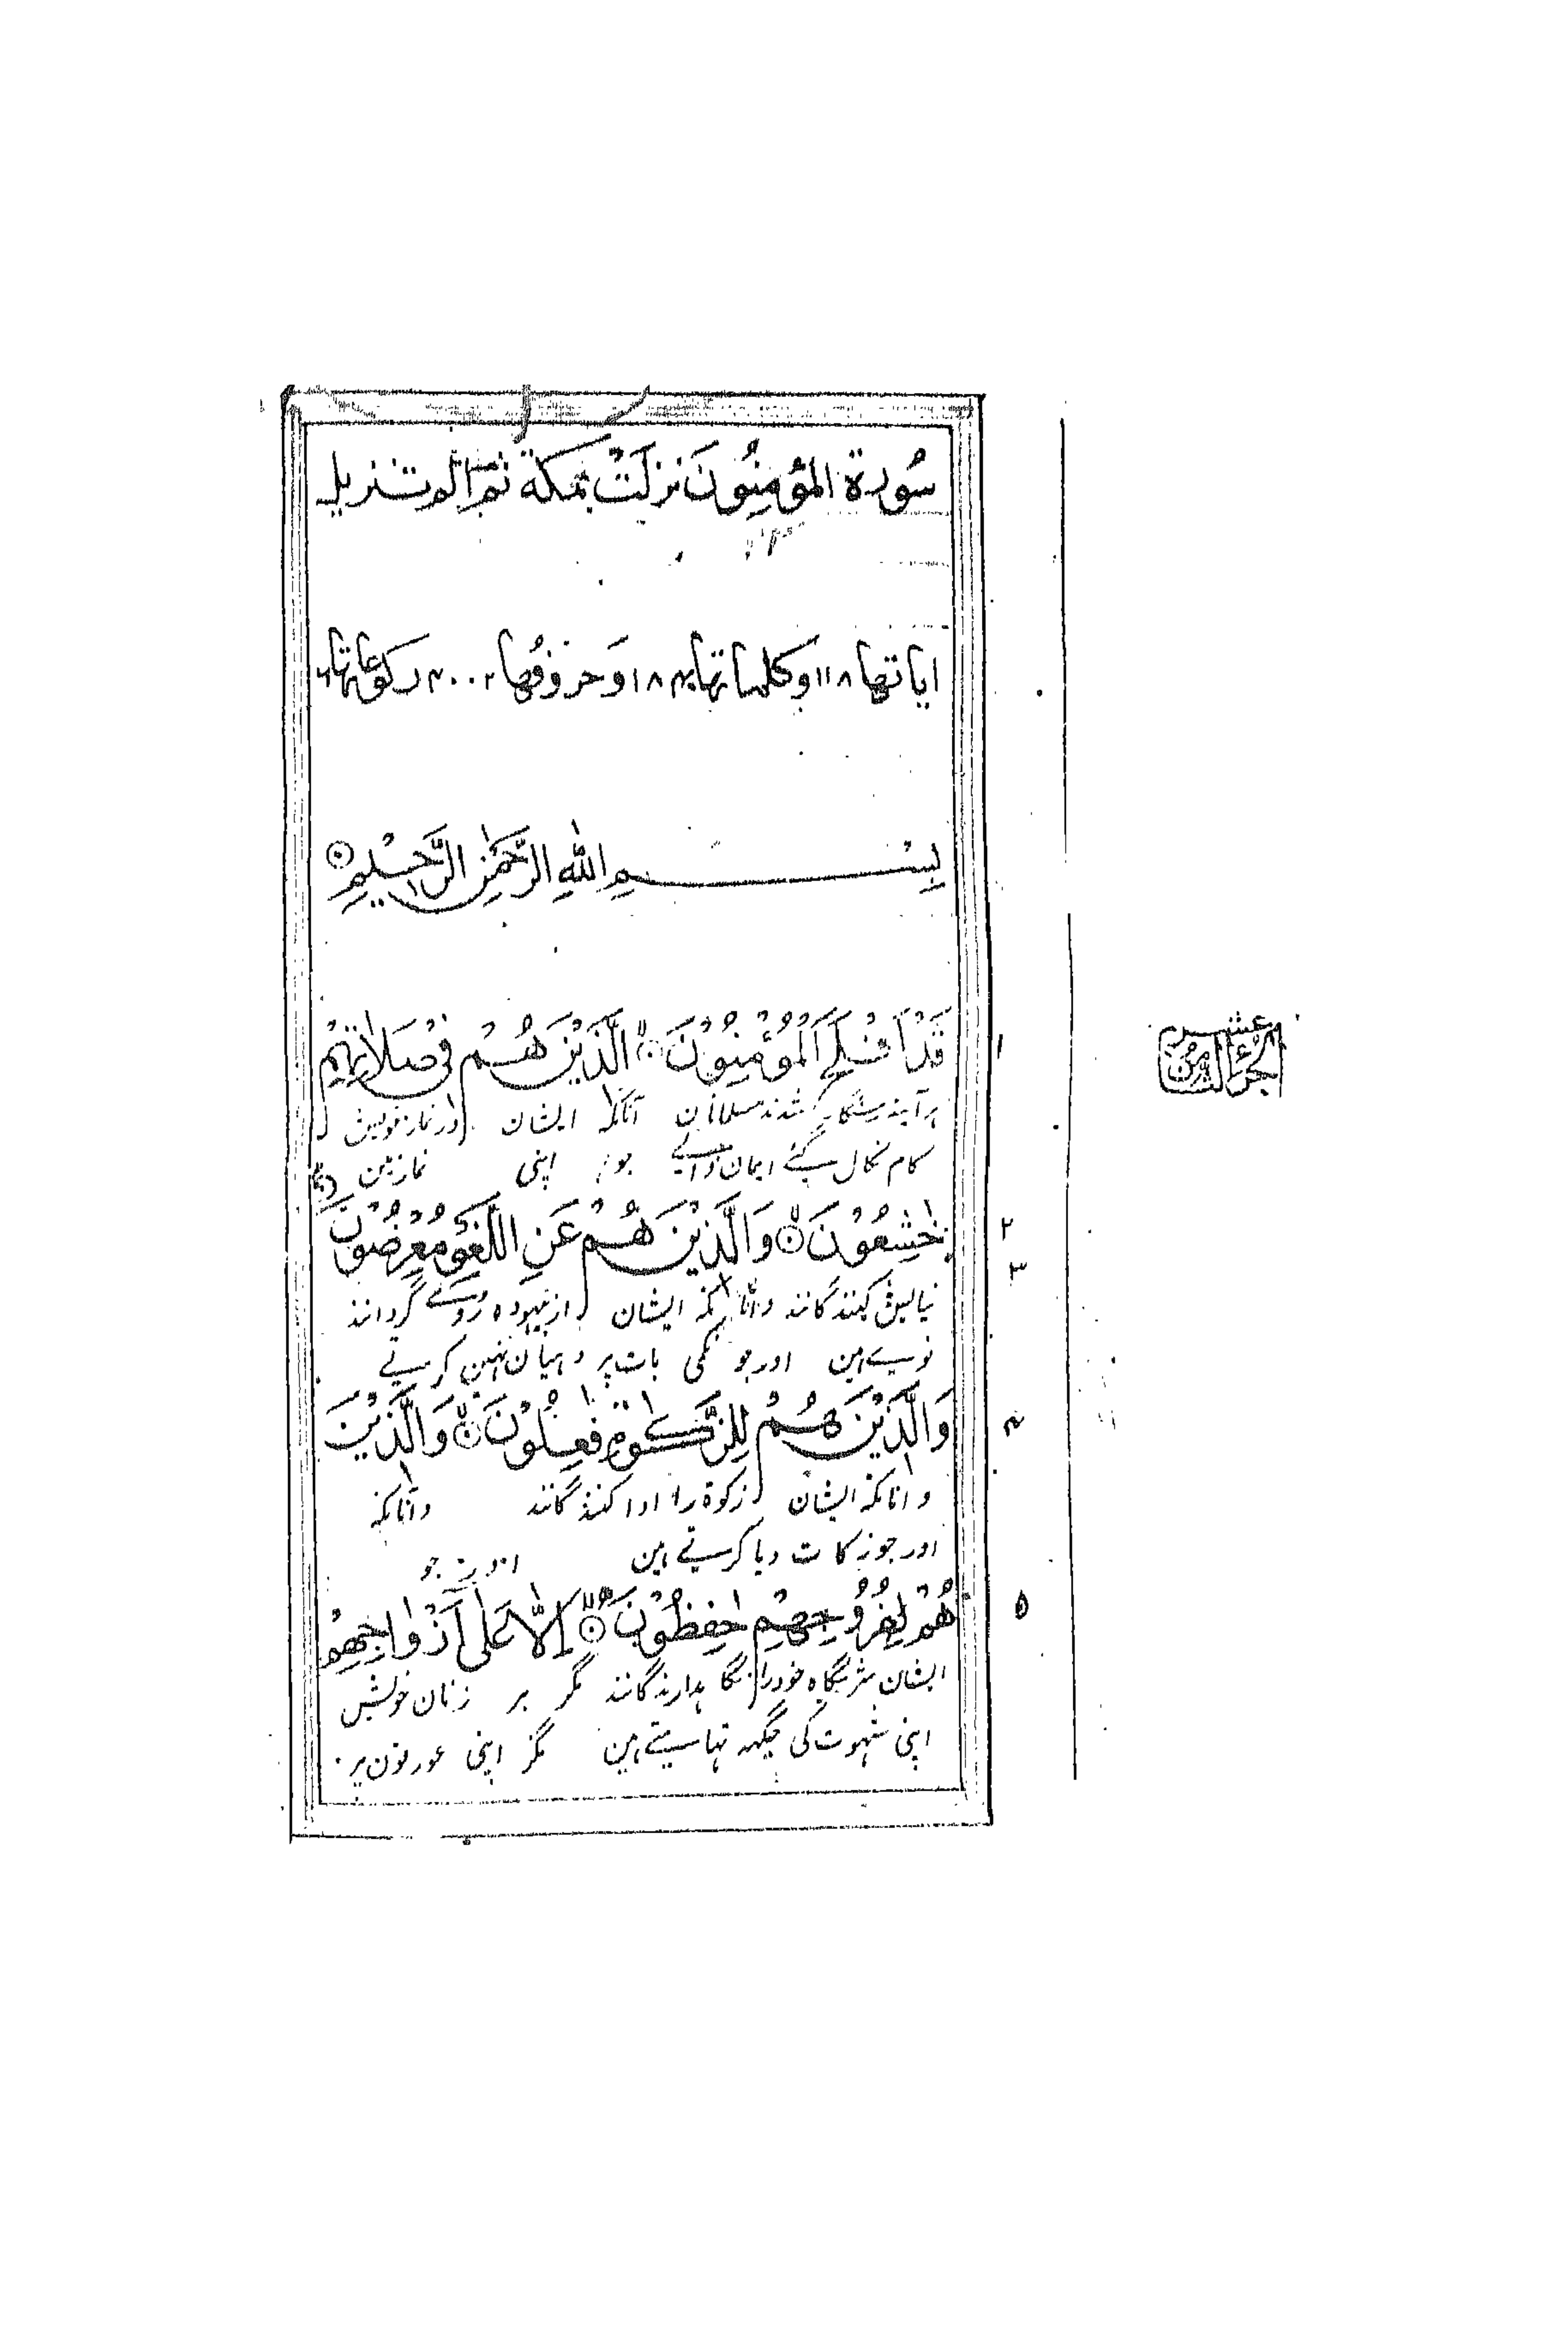 سُورة المؤمِنُونَ نزلَتْ بمَكة ثمَّ الم تنزيل
اياتها ١١٨ وكلماتها ١٨٤٠ وَحروفُها ٤٠٠٢ ركوعاتها ٦
بِسْمِ اللّٰهِ الرَّحْمٰنِ الرَّحِيْمِ
قَدْ اَفْلَحَ الْمُؤْمِنُوْنَ الَّذِيْنَ هُمْ فِيْ صَلَاتِهِمْ
١
الجزء الثامن عشر
هر آینه رستگار شدند مسلمانان آنانکه ایشان در نماز خویش
کام نکال لے گئے ایمان والے جو اپنی نماز مین
خٰشِعُوْنَ وَالَّذِيْنَ هُمْ عَنِ اللَّغْوِ مُعْرِضُوْنَ
٢
٣
نیایش کنندگانند و آنانکه ایشان از بیهوده روے گردانند
نوے ہین اور جو نکمی بات پر دہیان نہین کرتے
وَالَّذِيْنَ هُمْ لِلزَّكٰوةِ فٰعِلُوْنَ وَالَّذِيْنَ
٤
و آنانکه ایشان زکوة را ادا کنندگانند و آنانکه
اور جو زکات دیا کرتے ہین اور جو
هُمْ لِفُرُوْجِهِمْ حٰفِظُوْنَ اِلَّا عَلٰى اَزْوَاجِهِمْ
٥
ایشان شرمگاه خود را نگاهدارندگانند مگر بر زنان خویش
اپنی شہوت کی جگہہ تہامتے ہین مگر اپنی عورتون پر